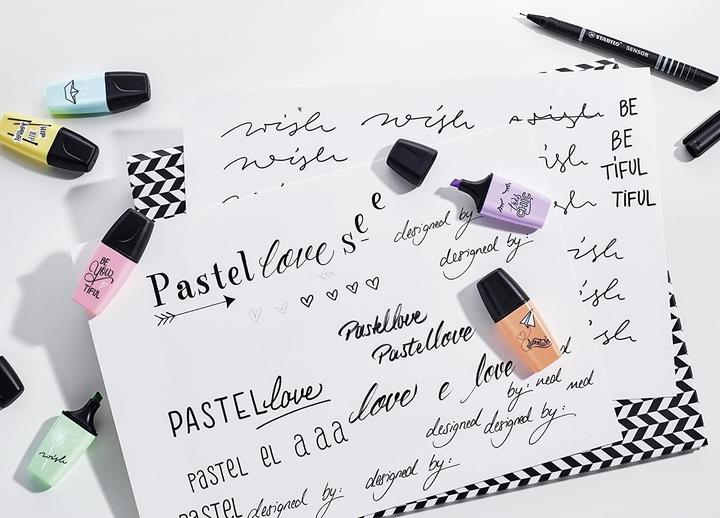 STABILO SENSOR
wish wish wish
wish
BE
BE
TIFUL
TIFUL
wish
wish
wish
HIP
HIP
HURRA!
designed by:
designed by:
Pastel love see
BE
YOU
TIFUL
Pastellove
Pastellove
PASTELlove love e love
by: ned ned
designed designed by:
PASTEL EL a a a
wish
designed by:
PASTEL designed by: